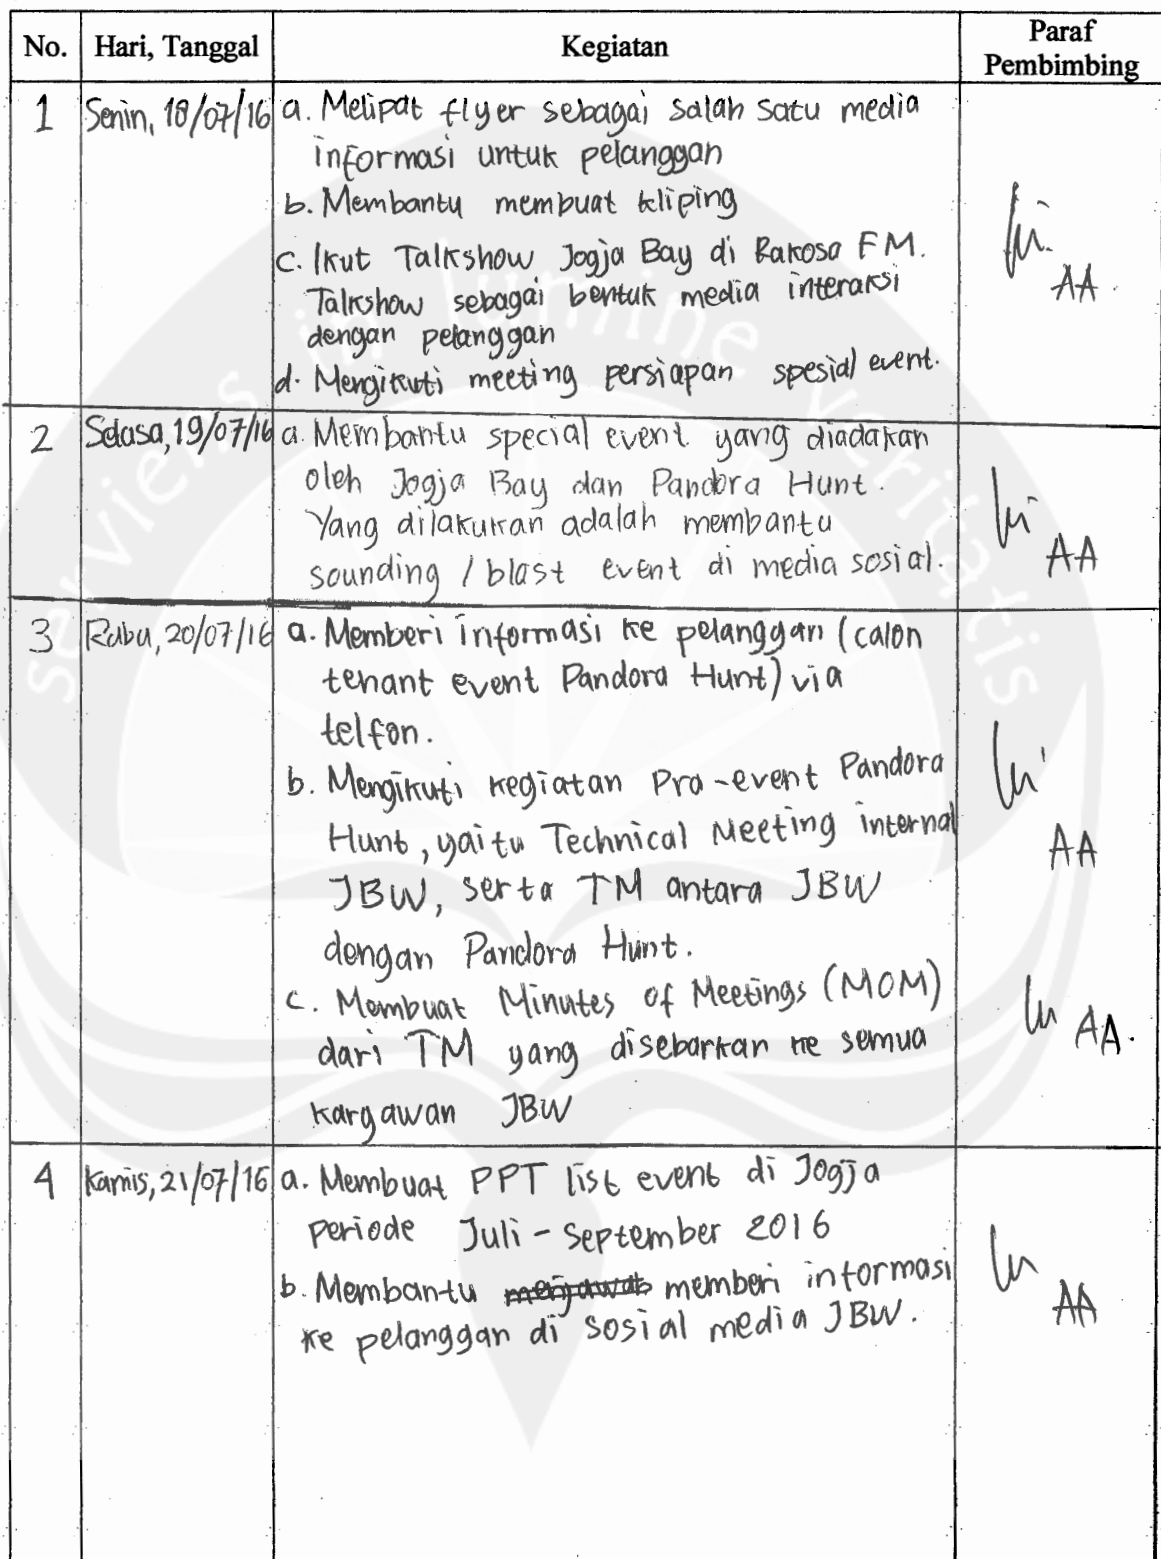 No. Hari, Tanggal Kegiatan Paraf Pembimbing
1 Senin, 18/07/16 a. Melipat flyer sebagai salah satu media
informasi untuk pelanggan
b. Membantu membuat kliping
c. Ikut Talkshow Jogja Bay di Rakosa FM.
Talkshow sebagai bentuk media interaksi
dengan pelanggan
d. Mengikuti meeting persiapan spesial event.
AA
2 Selasa, 19/07/16 a. Membantu special event yang diadakan
oleh Jogja Bay dan Pandora Hunt.
Yang dilakukan adalah membantu
sounding / blast event di media sosial.
AA
3 Rabu, 20/07/16 a. Memberi informasi ke pelanggan (calon
tenant event Pandora Hunt) via
telfon.
b. Mengikuti kegiatan Pra-event Pandora
Hunt, yaitu Technical Meeting internal
JBW, serta TM antara JBW
dengan Pandora Hunt.
AA
c. Membuat Minutes of Meetings (MOM)
dari TM yang disebarkan ke semua
kargawan JBW
AA.
4 Kamis, 21/07/16 a. Membuat PPT list event di Jogja
periode Juli - September 2016
b. Membantu menjawab memberi informasi
ke pelanggan di sosial media JBW.
AA
serviens in lumine veritatis